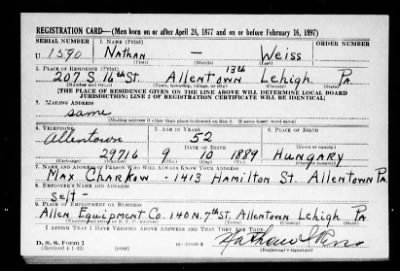 REGISTRATION CARD—(Men born on or after April 28, 1877 and on or before February 16, 1897)
SERIAL NUMBER 1. NAME (Print) ORDER NUMBER
U 1590 NATHAN — Weiss
2. PLACE OF RESIDENCE (Print)
13th
207 S 16th St. Allentown Lehigh Pa
[THE PLACE OF RESIDENCE GIVEN ON THE LINE ABOVE WILL DETERMINE LOCAL BOARD
JURISDICTION; LINE 2 OF REGISTRATION CERTIFICATE WILL BE IDENTICAL]
3. MAILING ADDRESS
same
[Mailing address if other than place indicated on line 2. If same insert word same]
4. TELEPHONE 5. AGE IN YEARS 6. PLACE OF BIRTH
Allentown 52
DATE OF BIRTH
29716 9 10 1889 HUNGARY
7. NAME AND ADDRESS OF PERSON WHO WILL ALWAYS KNOW YOUR ADDRESS
MAX CHARKOW - 1413 HAMILTON ST. ALLENTOWN PA
8. EMPLOYER'S NAME AND ADDRESS
self -
9. PLACE OF EMPLOYMENT OR BUSINESS
Allen Equipment Co. 140 N. 7th ST. Allentown Lehigh Pa
I AFFIRM THAT I HAVE VERIFIED ABOVE ANSWERS AND THAT THEY ARE TRUE.
D. S. S. Form 1
(Revised 4-1-42) (over) Nathan Weiss
(Registrant's signature)